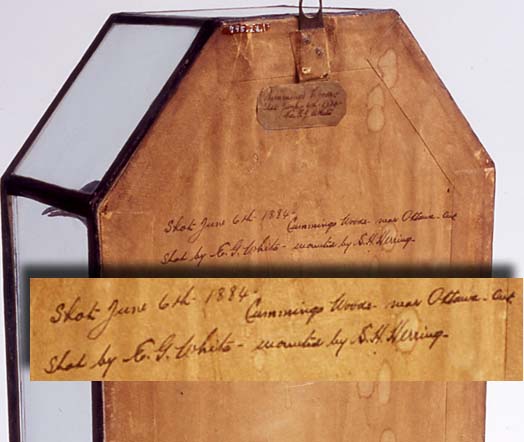 Cummings Woods
Shot June 6th 1884-
Cummings Woods - near Ottawa - Ont
Shot by E. G. White - mounted by S. H. Herring -
Shot June 6th 1884-
Cummings Woods - near Ottawa - Ont
Shot by E. G. White - mounted by S. H. Herring -